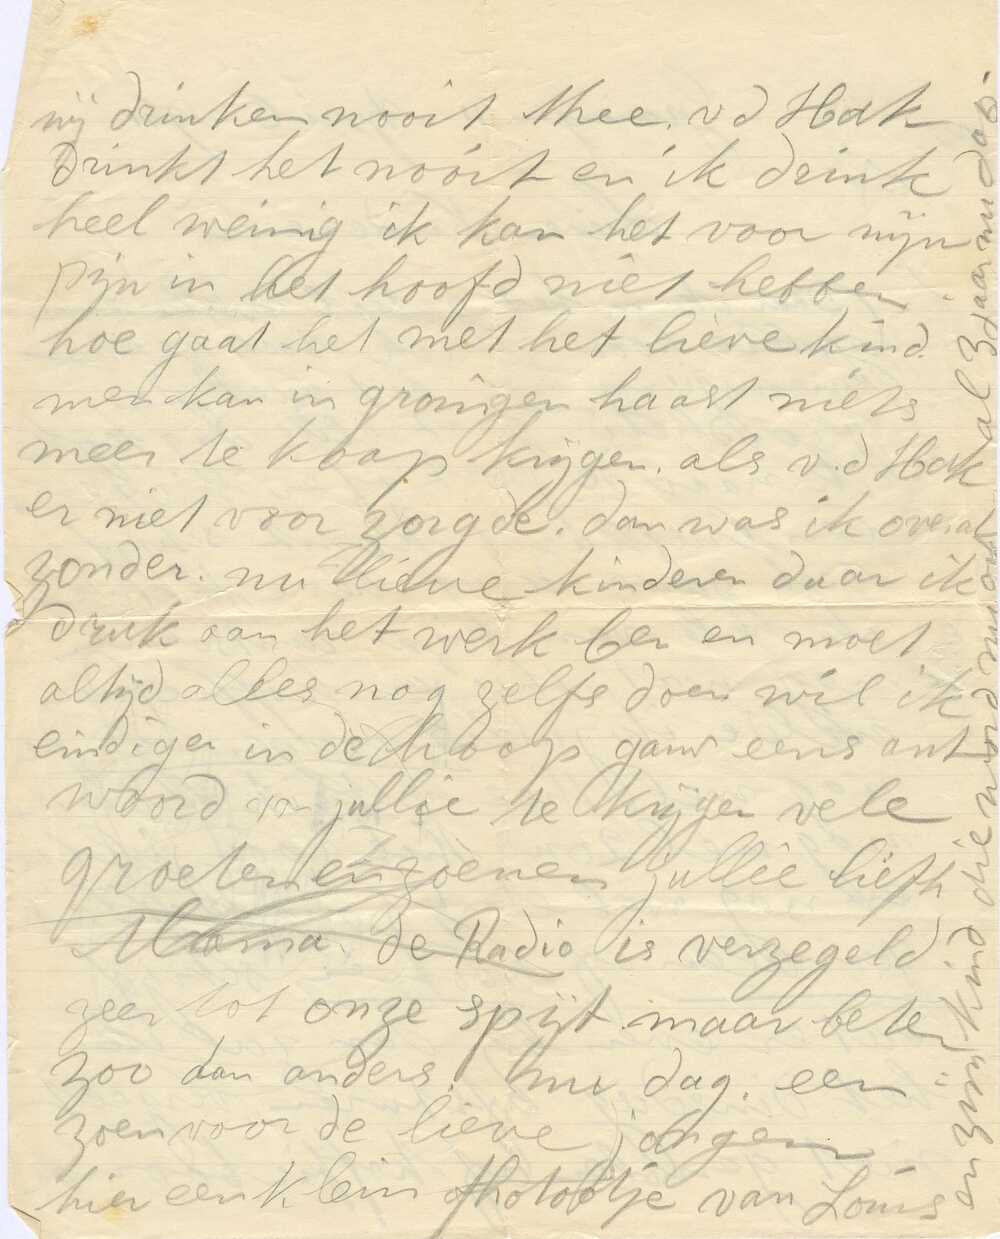 wij drinken nooit thee. v d Hak
drinkt het nooit en ik drink
heel weinig ik kan het voor mijn
pijn in het hoofd niet hebben
hoe gaat het met het lieve kind.
men kan in groningen haast niets
meer te koop krijgen. als v.d Hak
er niet voor zorgde. dan was ik overal
zonder. nu lieve kinderen daar ik
druk aan het werk ben en moet
altijd alles nog zelfs doen wil ik
eindigen in de hoop gauw eens ant
woord van jullie te krijgen vele
groeten en zoenen jullie liefh
Mama. de Radio is verzegeld
zeer tot onze spijt maar beter
zoo dan anders. nu dag. een
zoen voor de lieve jongen
hier een klein photootje van Louis
en zijn kind die word nu ook al 3 jaar nu dag